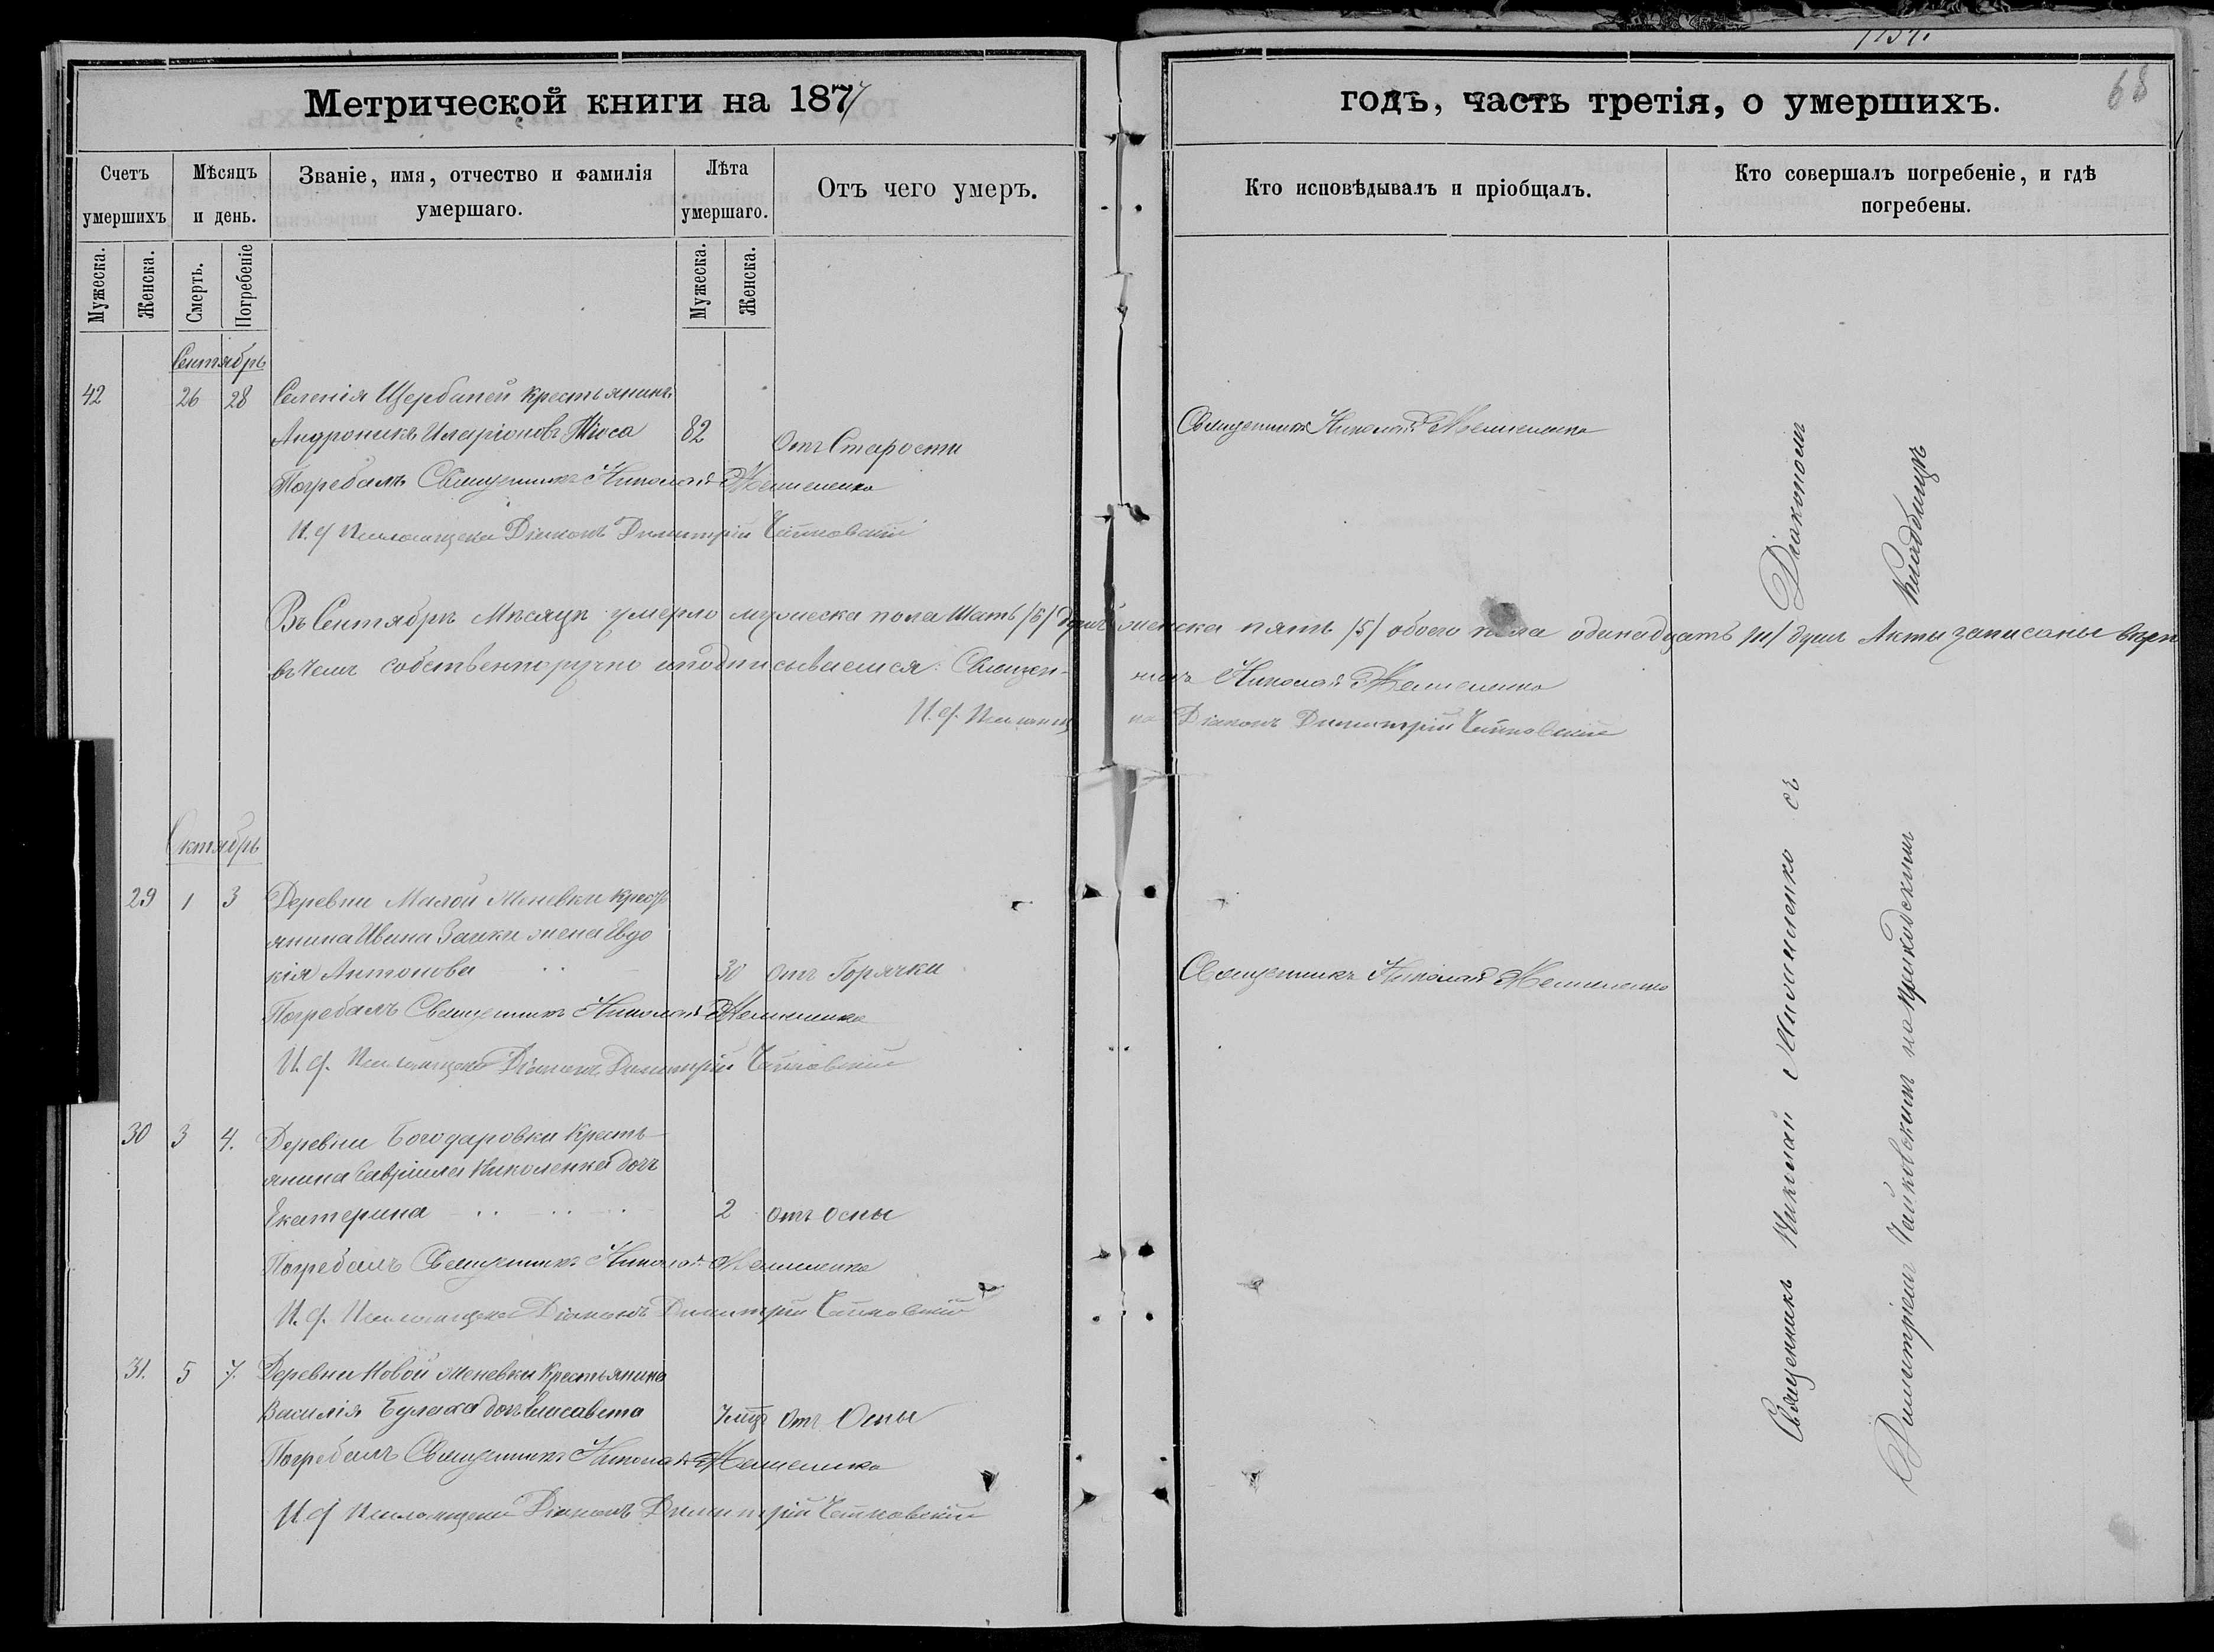 Метрической книги на 1877
годъ, часть третія, о умершихъ.
68
Счетъ умершихъ
Мѣсяцъ и день.
Званіе, имя, отчество и фамилія умершаго.
Лѣта умершаго.
Отъ чего умеръ.
Кто исповѣдывалъ и пріобщалъ.
Кто совершалъ погребеніе, и гдѣ погребены.
Мужеска.
Женска.
Смерть.
Погребеніе
Мужеска.
Женска.
Сентябрь
42 26 28 Селенія Щербаней крестьянинъ
Андроникъ Иларіоновъ 82 Отъ Старости
Священникъ Николай
Погребалъ Священникъ Николай
И. д Псаломщика Діаконъ Димитрій Чайковскій
Въ Сентябрѣ Мѣсяцѣ умерло мужеска пола Шесть /6/ душъ женска пять /5/ обоего пола одинадцать /11/ душъ Акты записаны
въ чемъ собственноручно и подписываемся: Священникъ Николай
И. д. Псаломщика Діаконъ Димитрій Чайковскій
Октябрь
29 1 3 Деревни Малой Меневки крестьянина Ивана Заики жена Евдо
кія Антонова 30 отъ Горячки
Священникъ Николай
Погребалъ Священникъ Николай
И. д. Псаломщика Діаконъ Димитрій Чайковскій
30 3 4. Деревни Богодаровки Кресть-
янина Гавріила Николенка дочь
Екатерина 2 отъ осны
Погребалъ Священникъ Николай
И. д. Псаломщика Діаконъ Димитрій Чайковскій
31. 5 7. Деревни Новой Меневки Крестьянина
Василія Булаха дочь Елисавета 7 мцъ отъ Осны
Погребалъ Священникъ Николай
И. д Псаломщика Діаконъ Димитрій Чайковскій
Священникъ Николай съ Діакономъ
Димитріемъ Чайковскимъ на приходскимъ Кладбищѣ